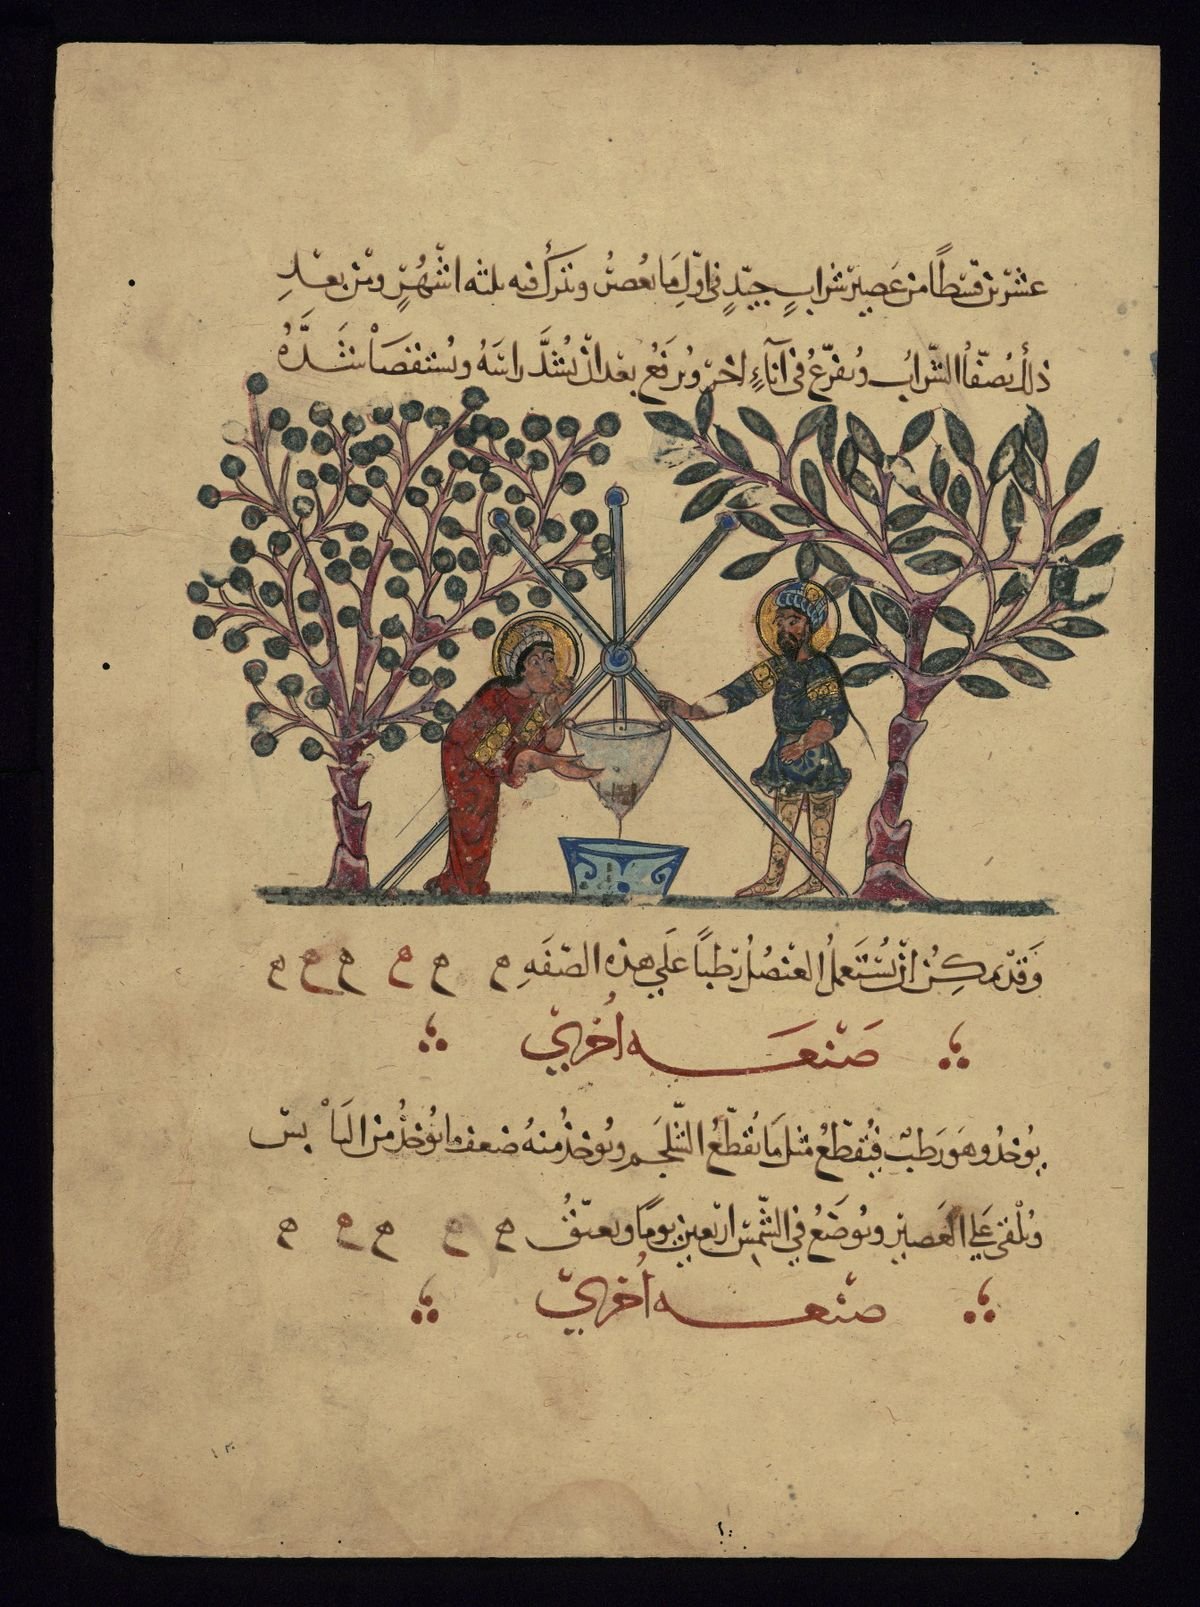 عشرين قسطًا من عصير شرابٍ جيّدٍ في اوّل ما يُعصرُ ويُتركُ فيه ثلثه اشهُرٍ ومن بعدِ
ذلك يُصفّا الشرابُ ويُفرّغُ في آناءٍ اخر ويُرفعُ بعد ان يُشدَّ راسَهُ ويُستقصا شَدَّهُ
وَقد يمكِنُ ان يُستَعملُ العنصُلُ رطبًا عَلي هذه الصّفَهِ م م م م م م
صَنعَه اُخري
يُوخذُ وهوَ رَطبٌ فيُقطّعُ مثل مَا يُقطّعُ الشّلجَم ويُوخذُ منهُ ضعف ما يُوخذُ من اليَابس
ويُلقي عَلي العَصيرِ ويُوضَعُ في الشّمسِ اربعين يومًا ويعتّقُ م م م م م
صنعه اُخري